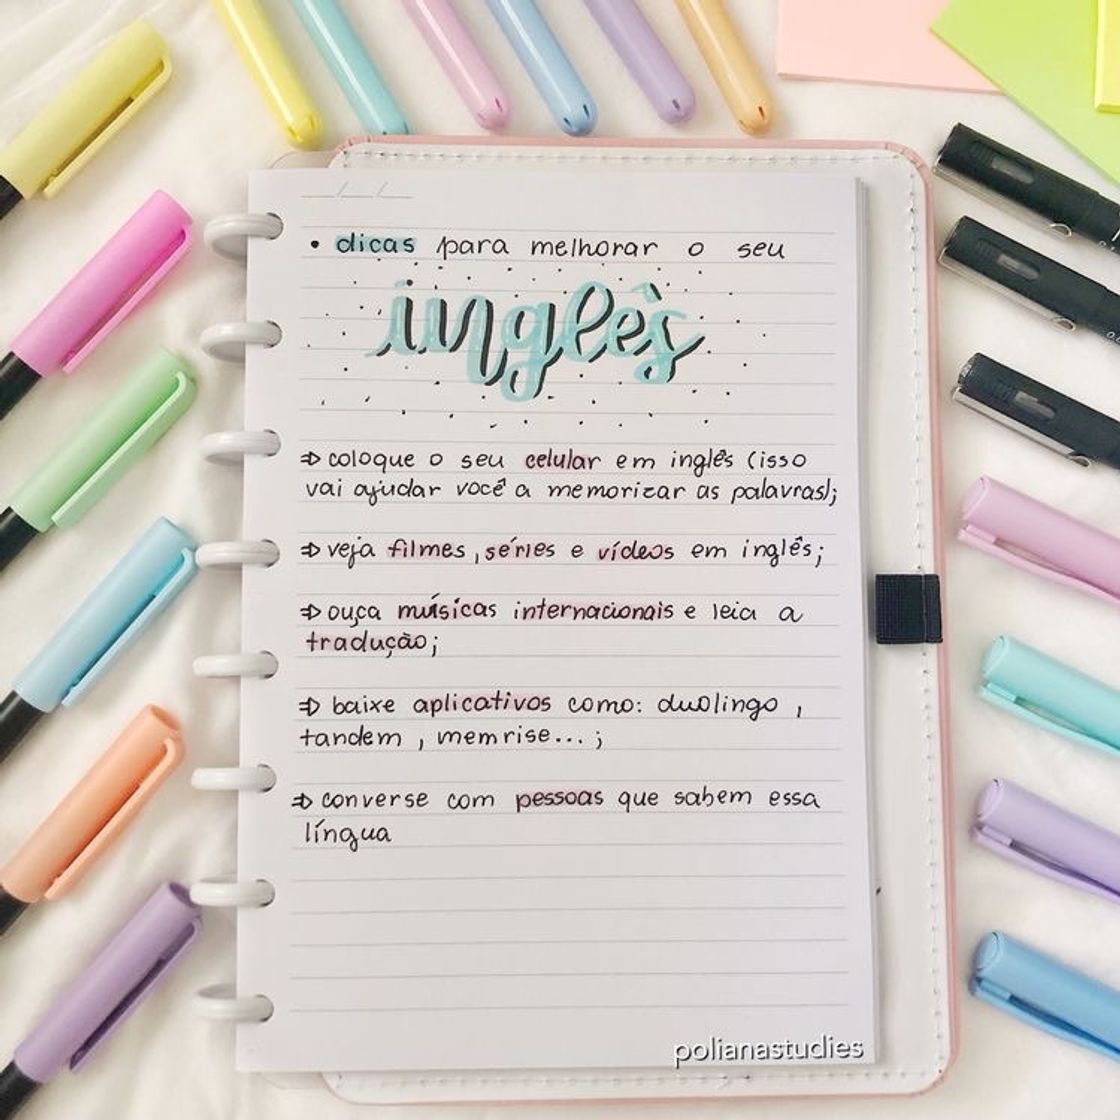 __/__/__
• dicas para melhorar o seu
inglês
⇒ coloque o seu celular em inglês (isso
vai ajudar você a memorizar as palavras);
⇒ veja filmes, séries e vídeos em inglês;
⇒ ouça músicas internacionais e leia a
tradução;
⇒ baixe aplicativos como: duolingo,
tandem, memrise...;
⇒ converse com pessoas que sabem essa
língua
polianastudies